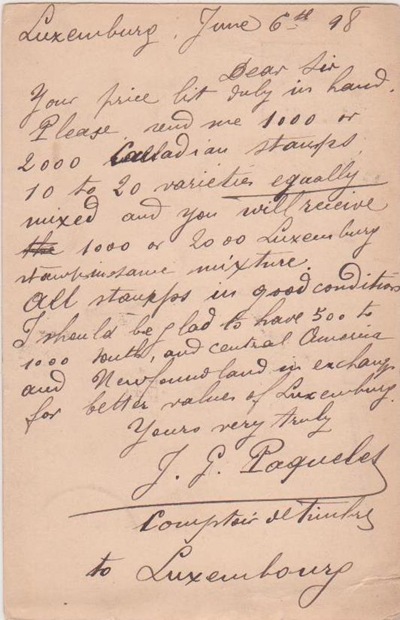 Luxemburg, June 6th 98
Dear Sir
Your price list duly in hand.
Please send me 1000 or
2000 Canadian stamps
10 to 20 varieties equally
mixed and you will receive
the 1000 or 2000 Luxemburg
stamps in same mixture.
All stamps in good condition
I should be glad to have 500 to
1000 South, and central America
and Newfoundland in exchange
for better values of Luxemburg.
Yours very truly
J. G.
Comptoir de timbres
to Luxembourg